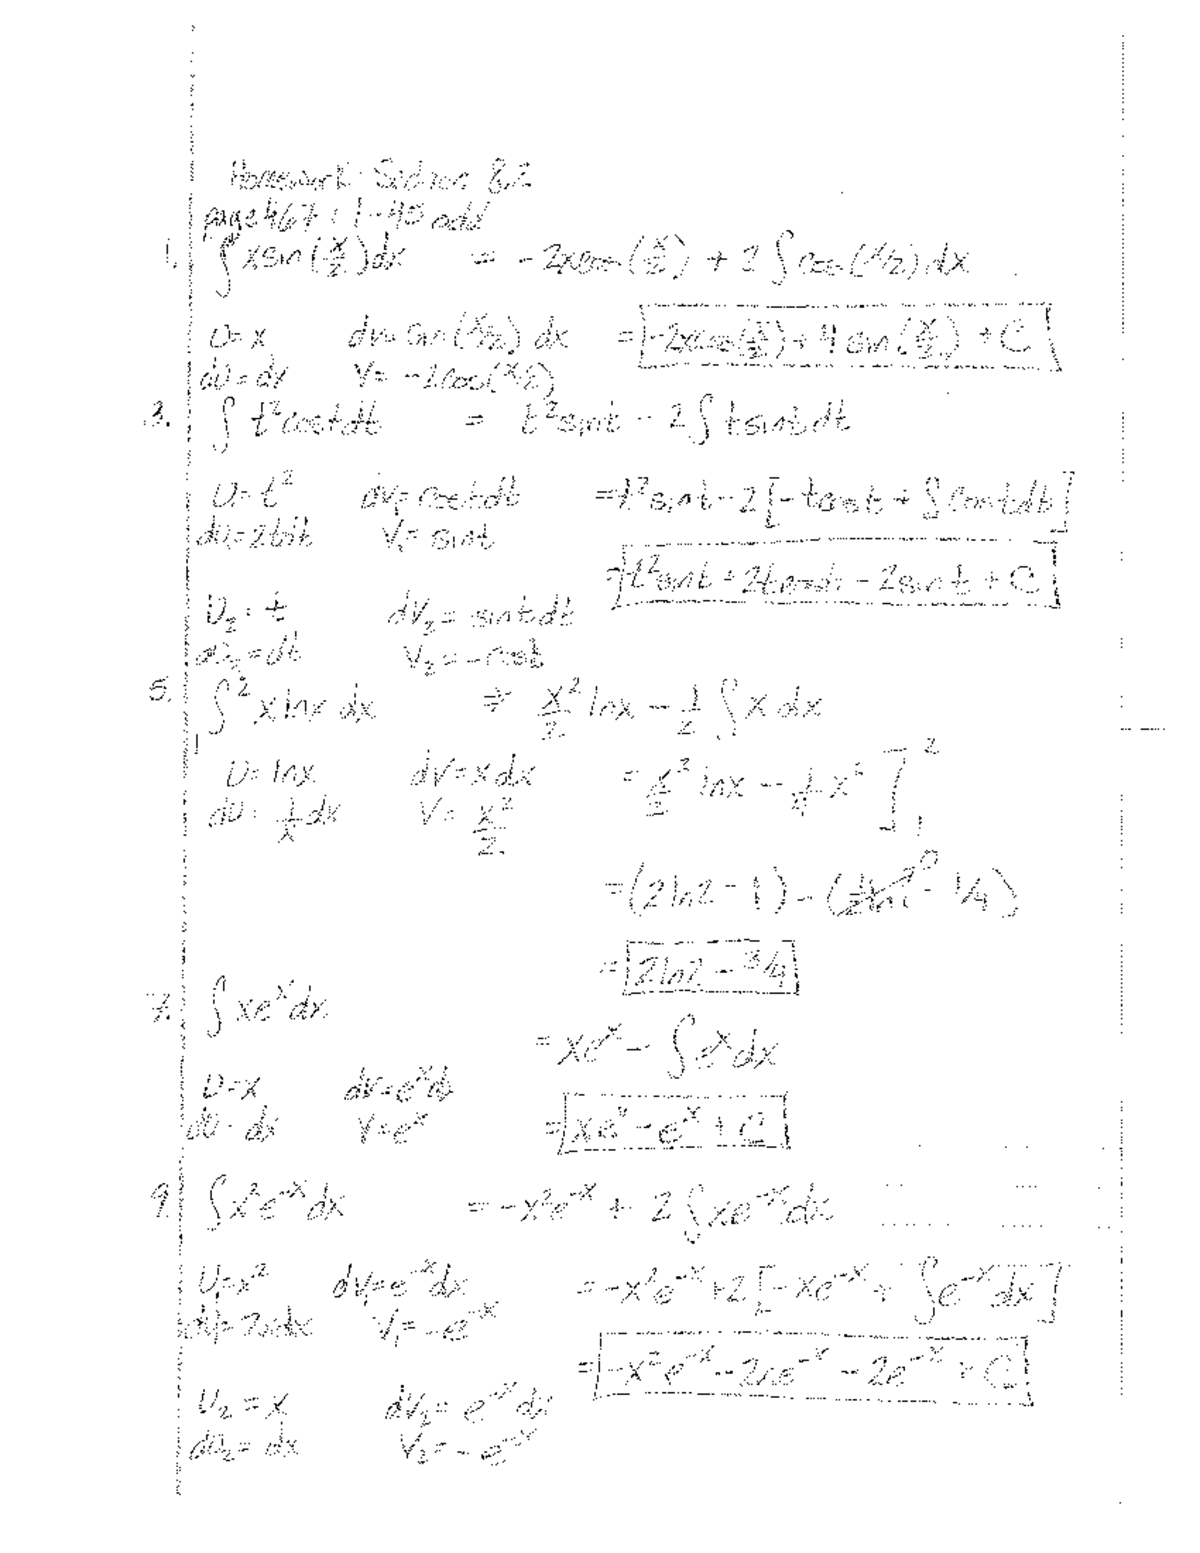 Homework Section 8.2
page 467: 1-45 odd
1. ∫ x sin(x/2) dx = -2x cos(x/2) + 2 ∫ cos(x/2) dx
U = x dv = sin(x/2) dx = -2x cos(x/2) + 4 sin(x/2) + C
dU = dx V = -2 cos(x/2)
3. ∫ t² cos t dt = t² sin t - 2 ∫ t sin t dt
U = t² dV₁ = cos t dt = t² sin t - 2 [-t cos t + ∫ cos t dt]
dU₁ = 2t dt V₁ = sin t
= t² sin t + 2t cos t - 2 sin t + C
U₂ = t dV₂ = sin t dt
dU₂ = dt V₂ = -cos t
5. ∫₁² x ln x dx = x²/2 ln x - 1/2 ∫ x dx
U = ln x dV = x dx = x²/2 ln x - 1/4 x² ]₁²
dU = 1/x dx V = x²/2
= (2 ln 2 - 1) - (1/2 ln 1 ⁰ - 1/4)
= 2 ln 2 - 3/4
7. ∫ x eˣ dx
= x eˣ - ∫ eˣ dx
U = x dV = eˣ dx
dU = dx V = eˣ = x eˣ - eˣ + C
9. ∫ x² e⁻ˣ dx = -x² e⁻ˣ + 2 ∫ x e⁻ˣ dx
U₁ = x² dV₁ = e⁻ˣ dx = -x² e⁻ˣ + 2 [-x e⁻ˣ + ∫ e⁻ˣ dx]
dU₁ = 2x dx V₁ = -e⁻ˣ
= -x² e⁻ˣ - 2x e⁻ˣ - 2e⁻ˣ + C
U₂ = x dV₂ = e⁻ˣ dx
dU₂ = dx V₂ = -e⁻ˣ